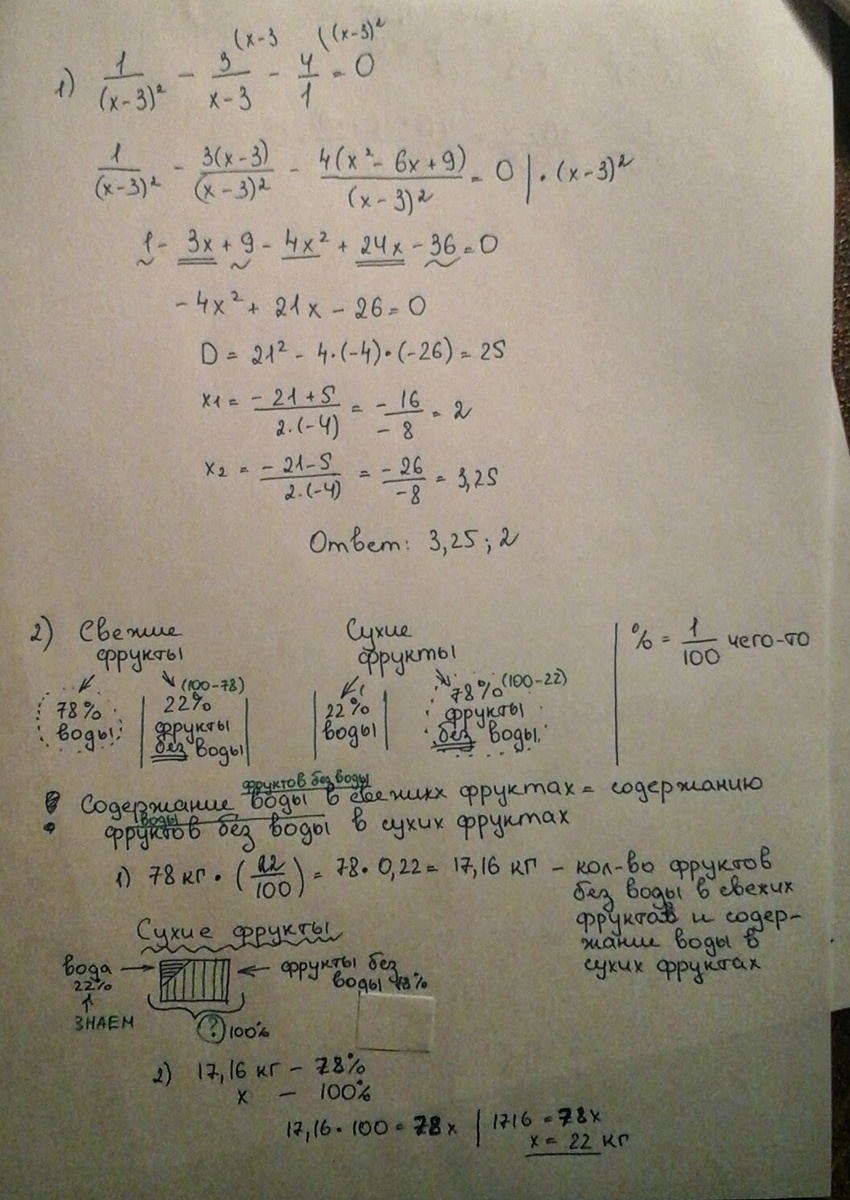 1) 1/(x-3)² - 3/(x-3) - 4/1 = 0 (x-3 ((x-3)²
1/(x-3)² - 3(x-3)/(x-3)² - 4(x²-6x+9)/(x-3)² = 0 | · (x-3)²
1 - 3x + 9 - 4x² + 24x - 36 = 0
-4x² + 21x - 26 = 0
D = 21² - 4·(-4)·(-26) = 25
x1 = (-21+5)/(2·(-4)) = -16/-8 = 2
x2 = (-21-5)/(2·(-4)) = -26/-8 = 3,25
Ответ: 3,25; 2
2) Свежие фрукты
78% воды
(100-78)
22% фрукты без воды
Сухие фрукты
22% воды
78% (100-22)
фрукты без воды
% = 1/100 чего-то
фруктов без воды
Содержание воды в свежихх фруктах = содержанию
воды
фруктов без воды в сухих фруктах
1) 78 кг · (22/100) = 78 · 0,22 = 17,16 кг – кол-во фруктов
без воды в свежих
фруктах и содер-
жание воды в
сухих фруктах
Сухие фрукты
вода
22%
ЗНАЕМ
фрукты без
воды 78%
? 100%
2) 17,16 кг – 78%
x – 100%
17,16 · 100 = 78x | 1716 = 78x
x = 22 кг